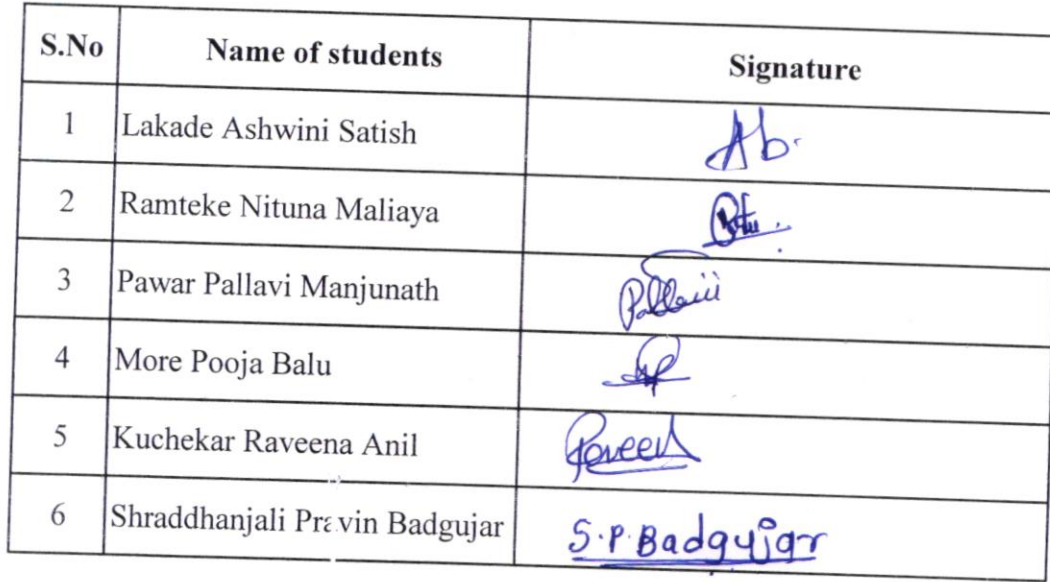 S.No Name of students Signature
1 Lakade Ashwini Satish Ab.
2 Ramteke Nituna Maliaya
3 Pawar Pallavi Manjunath Pallavi
4 More Pooja Balu
5 Kuchekar Raveena Anil Raveena
6 Shraddhanjali Pravin Badgujar S.P.Badgujar